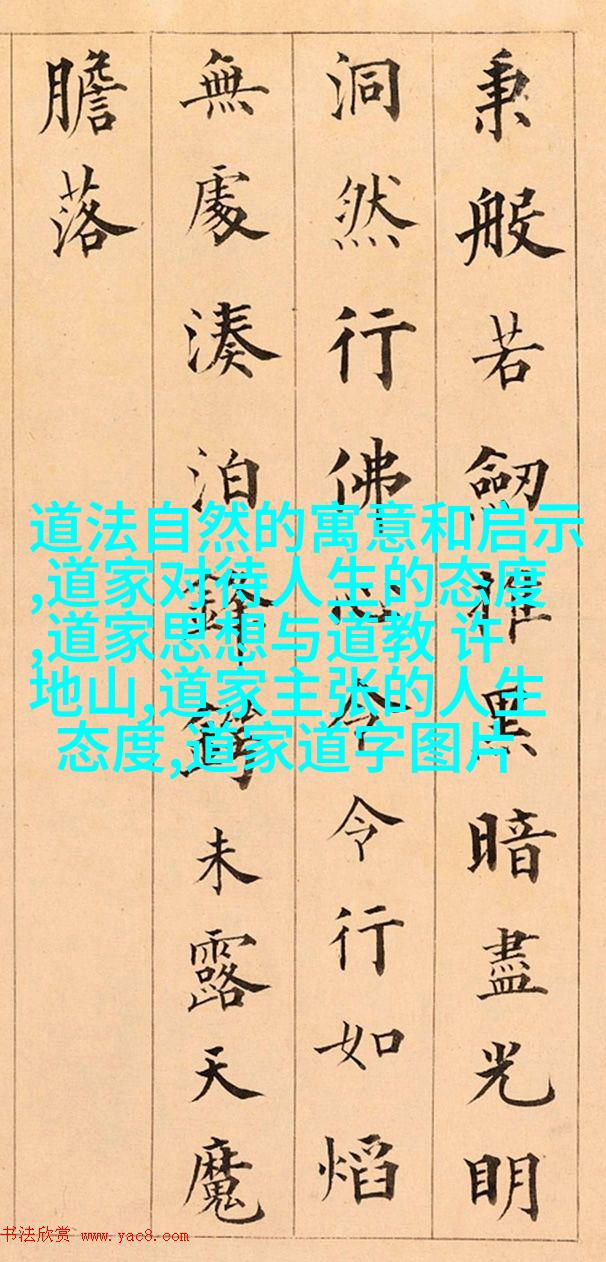 秉般若劔摧黑暗盡光明
洞然行佛心令令行如熖
無處湊泊鋒鋩未露天魔
膽落
道法自然的寓意和启示
,道家对待人生的态度
,道家思想与道教 许
地山,道家主张的人生
态度,道家道字图片
书法欣赏 www.yac8.com